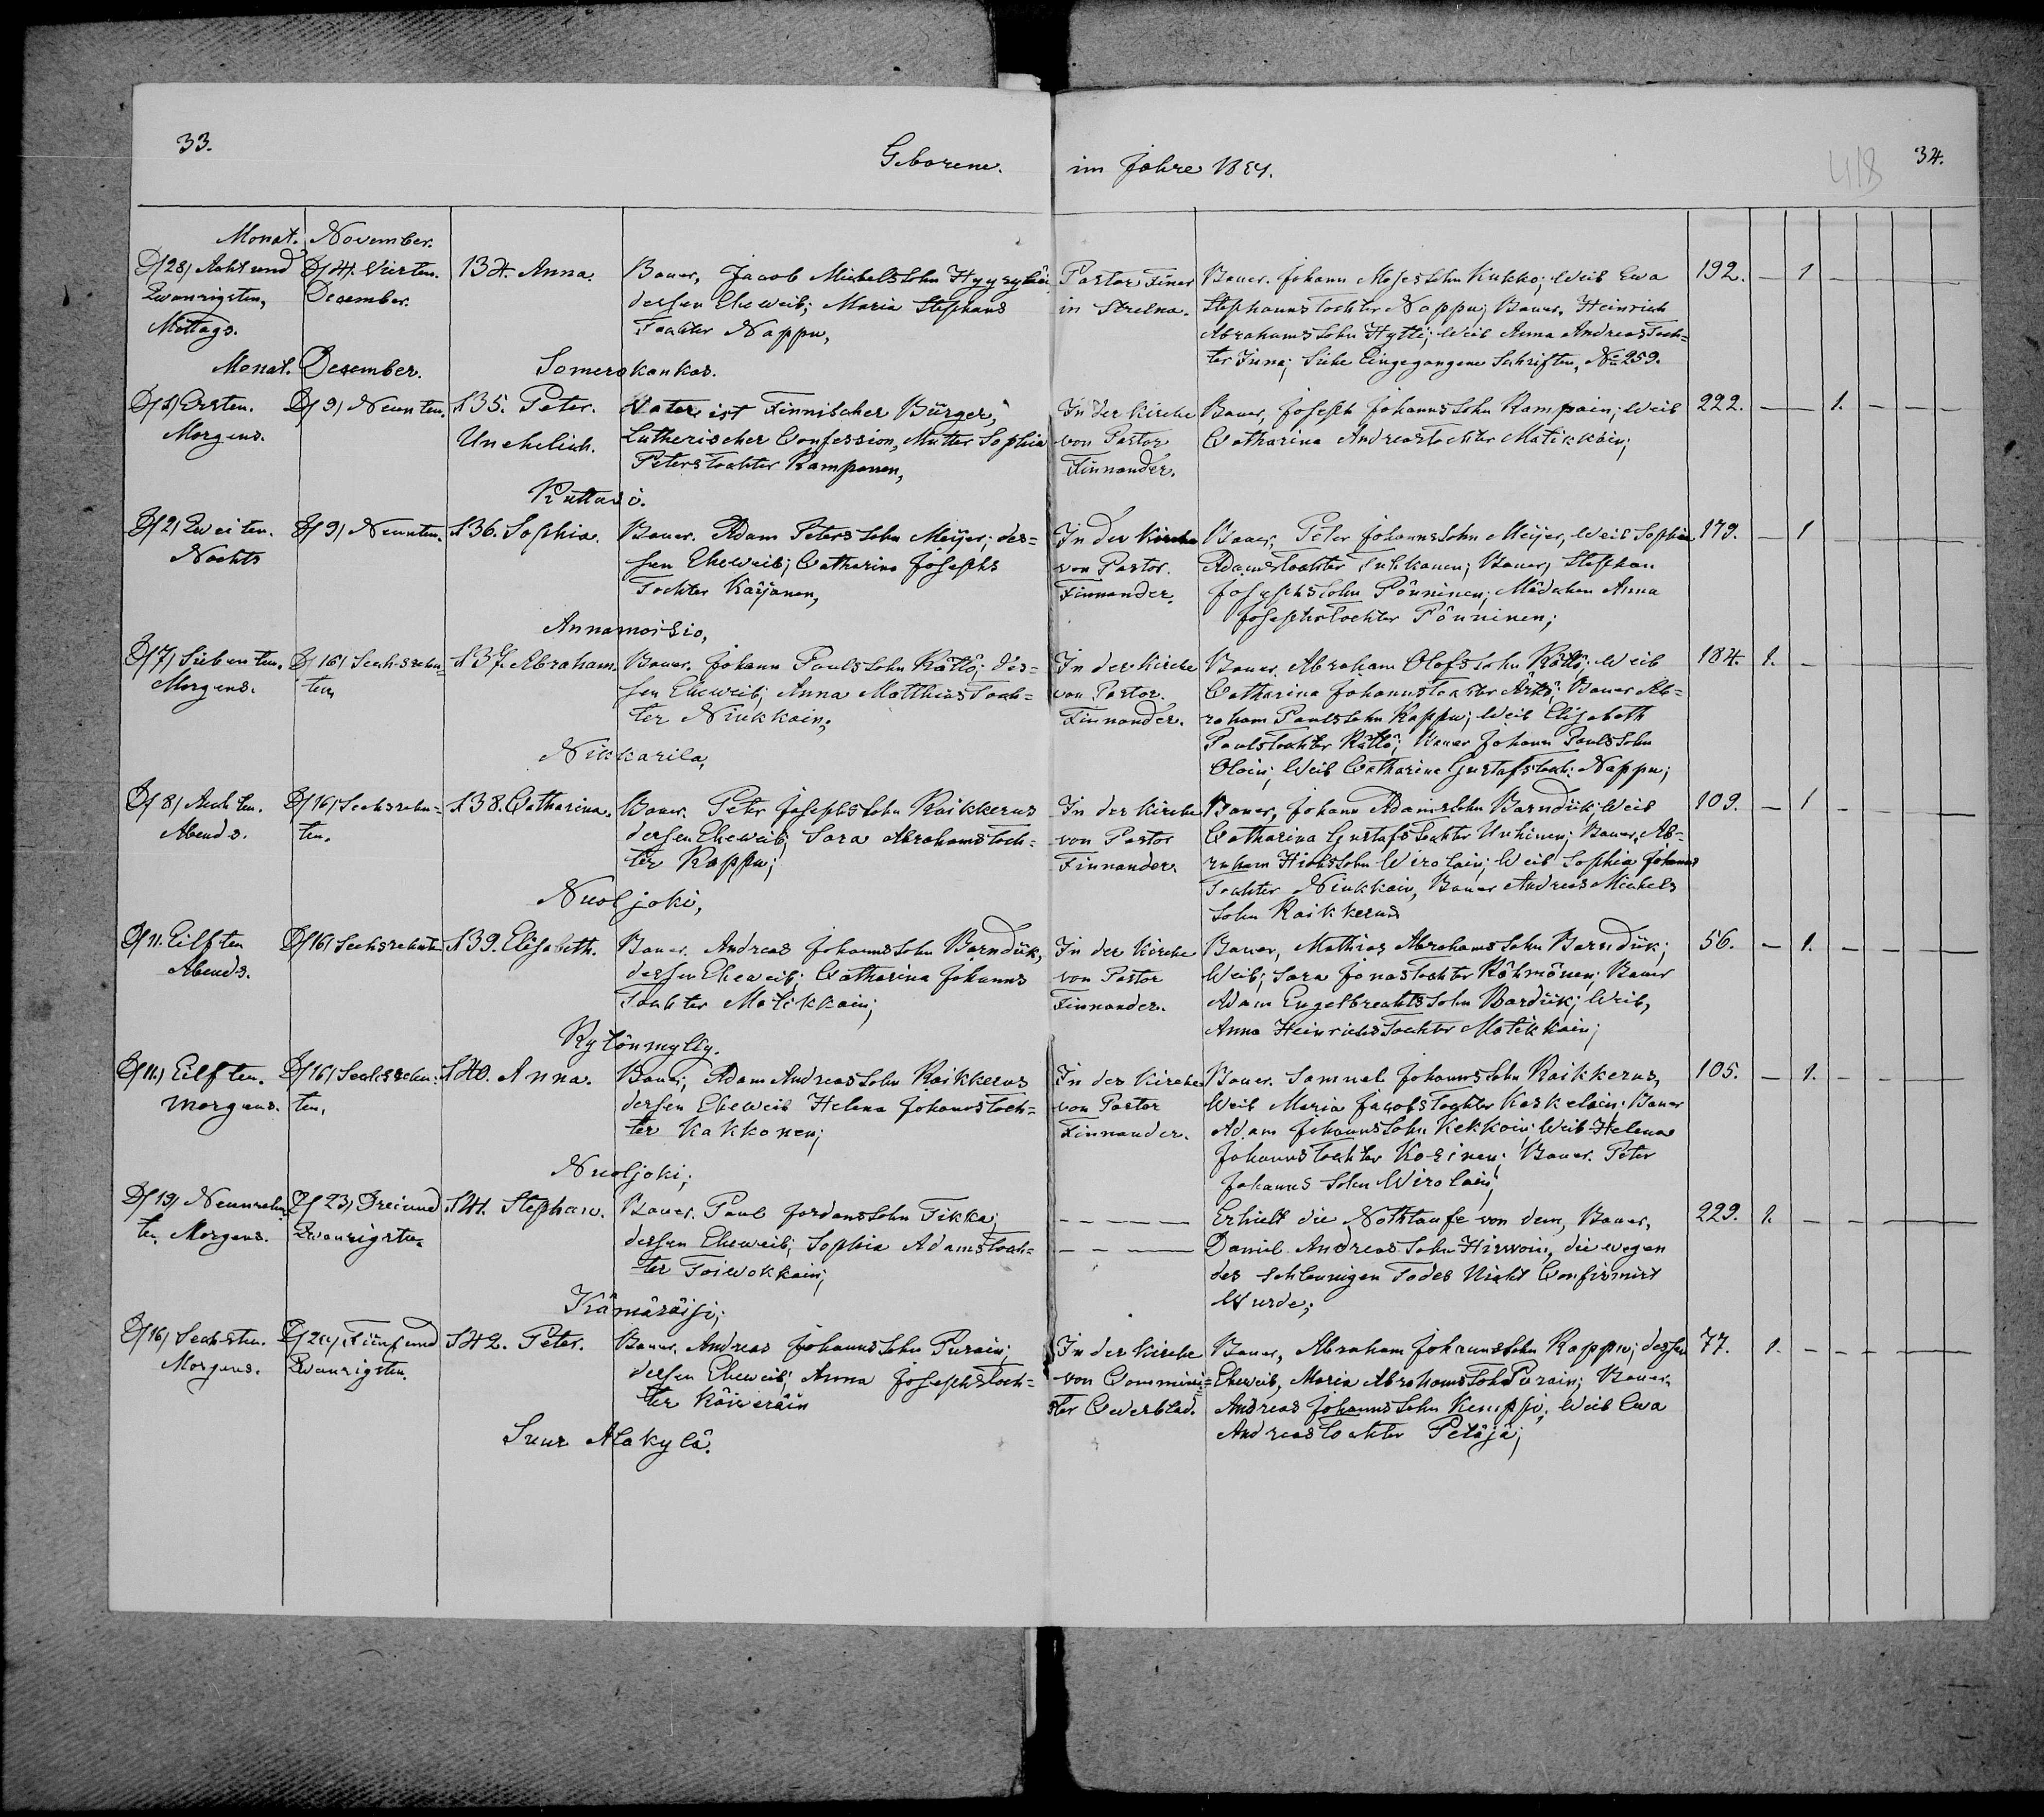 33.
Geborene.
im Jahre 1884.
418
34.
Monat. November.
D/28/ Acht und
Zwanzigsten,
Mittags.
D/4. Vierten.
December.
134. Anna.
Bauer, Jacob Michelssohn Hyyrylä
dessen Eheweib; Maria Stephans
Tochter Nappu,
Pastor Finer
in Strelna.
Bauer. Johann Mosessohn Kukko; Weib Ewa
Stephannstochter Nappu; Bauer, Heinrich
Abrahamssohn Hytti; Weib Anna Andreastoch=
ter Inna; Siehe Eingegangene Schriften, No 259.
192. — 1 — — — —
Monat. Desember.
Somerokankas.
D/1/ Ersten.
Morgens.
D/9/ Neunten.
135. Peter.
Unehelich.
Vater ist Finnischer Bürger,
Lutherischer Confession, Mutter Sophia
Peterstochter Kamponen,
In der Kirche
von Pastor
Finnander.
Bauer, Joseph Johannssohn Kampain; Weib
Catharina Andreastochter Matikkain;
222. — — 1. — — —
D/2/ Zweiten.
Nachts
D/9/ Neunten.
136. Sophia.
Bauer. Adam Peterssohn Meijer; des=
sen Eheweib; Catharina Josephs
Tochter Käyänen,
In der Kirche
von Pastor.
Finnander.
Bauer, Peter Johannssohn Meijer, Weib Sophia
Adamstochter Tukkanen; Bauer, Stephan
Josephssohn Pönninen; Mädchen Anna
Josephstochter Pönninen;
179. — 1 — — — —
Annamoisio,
D/7/ Siebenten.
Morgens.
D/16/ Sechszehn=
ten,
137. Abraham.
Bauer. Johann Paulssohn Rättö; des=
sen Eheweib; Anna Matthiastoch=
ter Niukkain;
In der Kirche
von Pastor.
Finnander.
Bauer. Abraham Olofssohn Rättö; Weib
Catharina Johannstochter Ärtö; Bauer Ab=
raham Paulssohn Kappu; Weib Elisabeth
Paulstochter Rättö; Bauer Johann Paulssohn
Oloin; Weib Catharina Gustafstoch: Nappu;
184. 1. — — — — —
Nikkarila,
D/8/ Achten.
Abends.
D/16/ Sechszehn=
ten.
138. Catharina.
Bauer. Peter Josephssohn Raikkerus
dessen Eheweib; Sara Abrahamstoch=
ter Kappu;
In der Kirche
von Pastor
Finnander.
Bauer, Johann Adamssohn Barndük; Weib
Catharina Gustafstochter Unhinen; Bauer, Ab=
raham Hickssohn Wirolain; Weib Sophia Johanns
Tochter Niukkain, Bauer Andreas Michels
Sohn Raikkerus
109. — 1 — — — —
Nuoljoki,
D/11. Eilften
Abends.
D/16/ Sechszehnten
139. Elisabeth.
Bauer. Andreas Johannssohn Barndük,
dessen Eheweib; Catharina Johanns
Tochter Matikkain;
In der Kirche
von Pastor
Finnander.
Bauer, Mathias Abrahamssohn Barndük;
Weib; Sara Jonastochter Kähmönen; Bauer
Adam Engelbrechtssohn Bardük; Weib,
Anna Heinrichstochter Matikkain;
56. — 1. — — — —
Rytönmylly.
D/11.) Eilften.
Morgens.
D/16/ Sechszehn=
ten,
140. Anna.
Bauer, Adam Andreassohn Raikkerus
dessen Eheweib Helena Johannstoch=
ter Kakkonen;
In der Kirche
von Pastor
Finnander.
Bauer. Samuel Johannssohn Raikkerus,
Weib Maria Jacobstochter Kaskelain; Bauer
Adam Johannssohn Kekkoin; Weib Helena
Johannstochter Kosinen; Bauer. Peter
Johanns Sohn Wirolain;
105. — 1. — — — —
Nuoljoki;
D/19/ Neunzehn=
ten Morgens.
D/23/ Dreiund
Zwanzigsten
141. Stephan.
Bauer. Paul Jordanssohn Tikka;
dessen Eheweib; Sophia Adamstoch=
ter Toiwokkain;
— — — —
— — — —
Erhielt die Nothtaufe von dem, Bauer,
Daniel Andreas Sohn Hirwoin, die wegen
des schleunigen Todes Nicht Confirmirt
Wurde;
229. 1. — — — — —
Kämäräisi;
D/16/ Sechsten.
Morgens.
Fünfund
Zwanzigsten.
142. Peter.
Bauer, Andreas Johannssohn Purain;
dessen Eheweib; Anna Josephstoch=
ter Käiweräin
In der Kirche
von Commini=
ster Cederblad.
Bauer, Abraham Johannssohn Kappu; dessen
Eheweib, Maria Abrahamstoch Purain; Bauer,
Andreas Johannssohn Kemppi; Weib Ewa
Andreastochter Petäjä;
77. 1. — — — — —
Suur Alakylä.